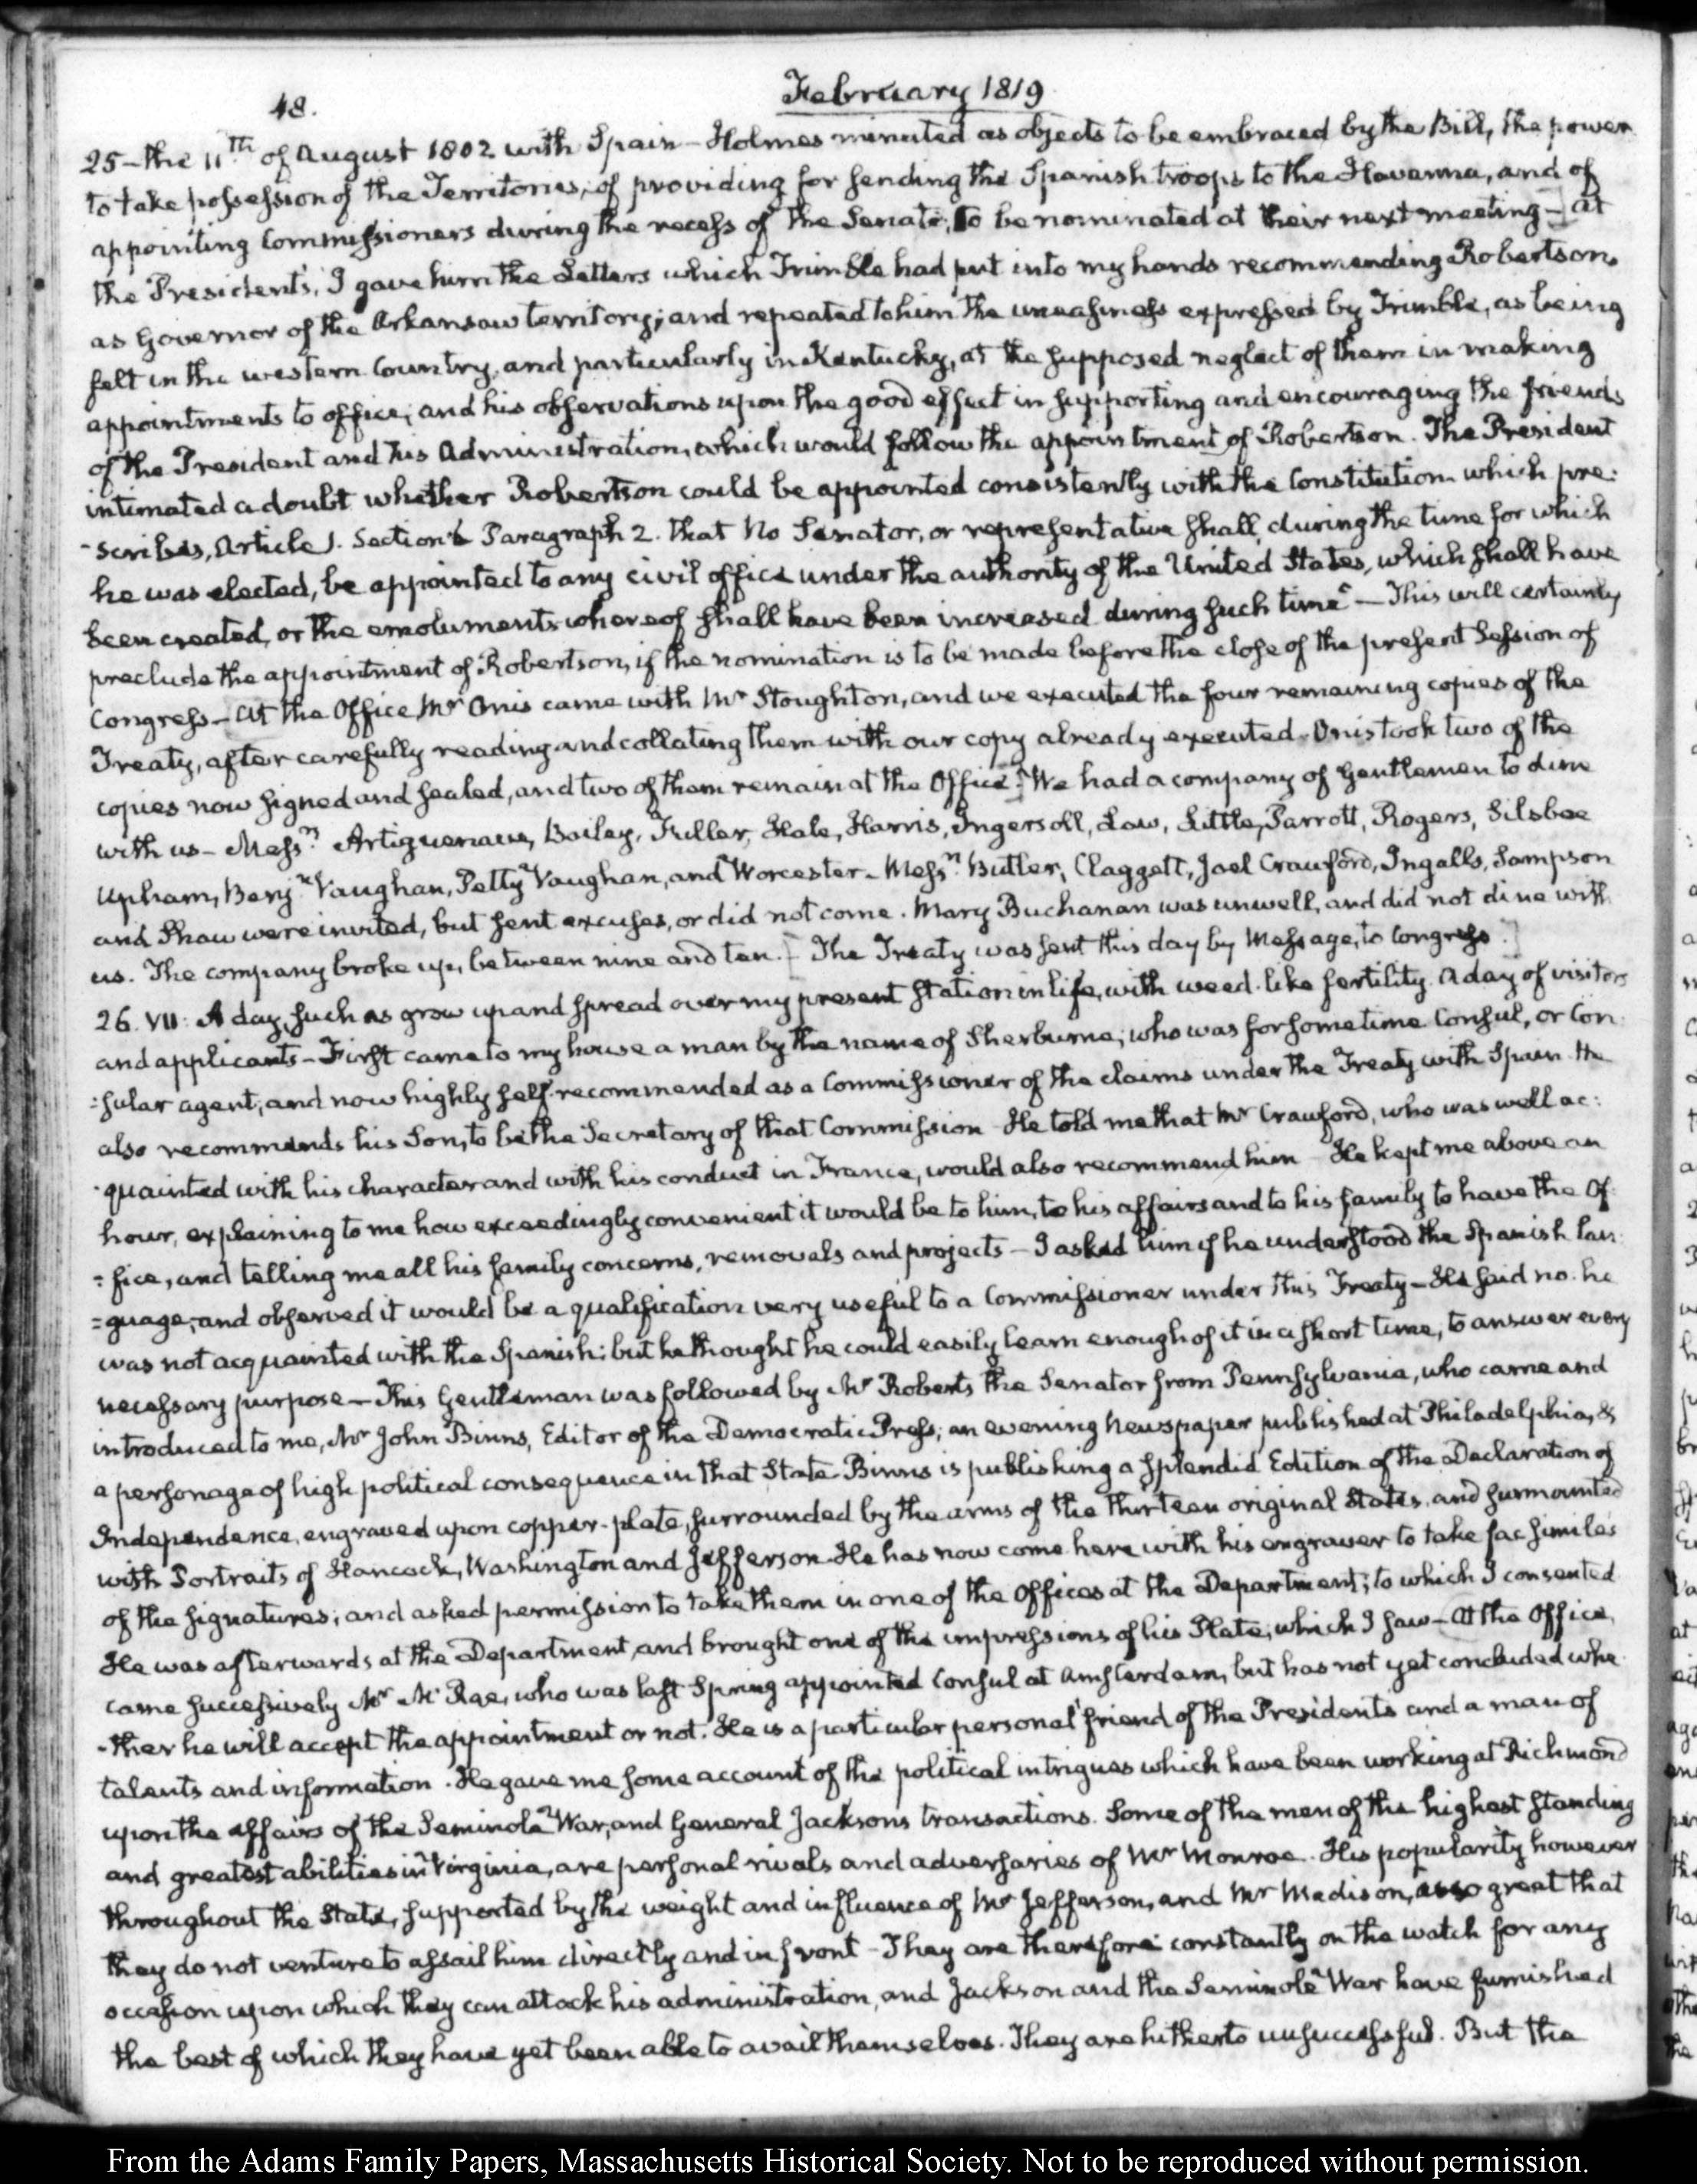 48.
February 1819
25 – the 11th of August 1802 with Spain – Holmes minuted as objects to be embraced by the Bill, the power
to take possession of the Territories, of providing for sending the Spanish troops to the Havanna, and of
appointing Commissioners during the recess of the Senate, to be nominated at their next meeting – at
the President's, I gave him the Letters which Trimble had put into my hands recommending Robertson
as Governor of the Arkansaw territory; and repeated to him the uneasiness expressed by Trimble, as being
felt in the western Country, and particularly in Kentucky, at the supposed neglect of them in making
appointments to office; and his observations upon the good effect in supporting and encouraging the friends
of the President and his Administration, which would follow the appointment of Robertson. The President
intimated a doubt whether Robertson could be appointed consistently with the Constitution which pre:
-scribes, Article 1. Section 6 Paragraph 2. that No Senator, or representative shall, during the time for which
he was elected, be appointed to any civil office under the authority of the United States, which shall have
been created, or the emoluments whereof shall have been increased during such time" – This will certainly
preclude the appointment of Robertson, if the nomination is to be made before the close of the present Session of
Congress – At the Office Mr Onis came with Mr Stoughton, and we executed the four remaining copies of the
Treaty, after carefully reading and collating them with our copy already executed – Onis took two of the
copies now signed and sealed, and two of them remain at the Office. We had a company of Gentlemen to dine
with us – Messrs. Artiguenave, Bailey, Fuller, Hale, Harris, Ingersoll, Law, Little, Parrott, Rogers, Silsbee
Upham, Benjn Vaughan, Petty Vaughan, and Worcester – Messrs. Butler, Claggett, Joel Crawford, Ingalls, Sampson
and Shaw were invited, but sent excuses, or did not come. Mary Buchanan was unwell, and did not dine with
us. The company broke up, between nine and ten. – The Treaty was sent this day by Message, to Congress.
26. VII: A day, such as grow up and spread over my present station in life, with weed-like fertility. A day of visitors
and applicants – First came to my house a man by the name of Sherburne; who was for sometime Consul, or Con
:sular agent; and now highly self-recommended as a Commissioner of the claims under the Treaty with Spain. He
also recommends his Son, to be the Secretary of that Commission – He told me that Mr Crawford, who was well ac:
-quainted with his character and with his conduct in France, would also recommend him – He kept me above an
hour, explaining to me how exceedingly convenient it would be to him, to his affairs and to his family to have the Of
:fice, and telling me all his family concerns, removals and projects – I asked him if he understood the Spanish lan
=guage; and observed it would be a qualification very useful to a Commissioner under this Treaty – He said no. he
was not acquainted with the Spanish: but he thought he could easily learn enough of it in a short time, to answer every
necessary purpose – This Gentleman was followed by Mr Roberts the Senator from Pennsylvania, who came and
introduced to me, Mr John Binns, Editor of the Democratic Press; an evening Newspaper published at Philadelphia, &
a personage of high political consequence in that State. Binns is publishing a splendid Edition of the Declaration of
Independence, engraved upon copper-plate, surrounded by the arms of the thirteen original States, and surmounted
with Portraits of Hancock, Washington and Jefferson. He has now come here with his engraver to take fac similes
of the signatures; and asked permission to take them in one of the Offices at the Department; to which I consented
He was afterwards at the Department, and brought one of the impressions of his Plate, which I saw – At the Office,
came successively Mr McRae, who was last Spring appointed Consul at Amsterdam, but has not yet concluded whe
-ther he will accept the appointment or not. He is a particular personal friend of the Presidents and a man of
talents and information. He gave me some account of the political intrigues which have been working at Richmond
upon the affairs of the Seminole War, and General Jacksons transactions. Some of the men of the highest standing
and greatest abilities in Virginia, are personal rivals and adversaries of Mr Monroe. His popularity however
throughout the State, supported by the weight and influence of Mr Jefferson, and Mr Madison, is so great that
they do not venture to assail him directly and in front – They are therefore constantly on the watch for any
occasion upon which they can attack his administration, and Jackson and the Seminole War have furnished
the best of which they have yet been able to avail themselves. They are hitherto unsuccessful. But the
From the Adams Family Papers, Massachusetts Historical Society. Not to be reproduced without permission.